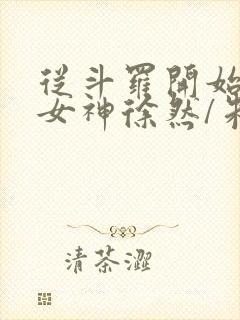 從斗羅開始
女神徐然/朱
清茶澀